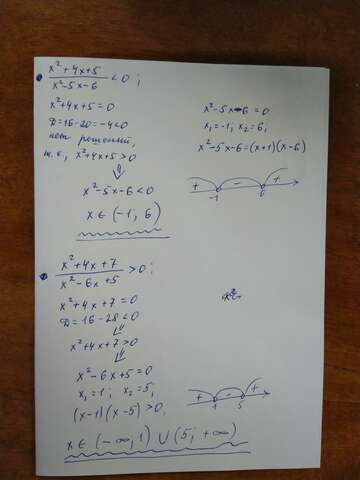 x²+4x+5 / x²-5x-6 < 0 ;
x²+4x+5=0
D=16-20=-4<0
нет решений,
т.е, x²+4x+5>0
⇓
x²-5x-6<0
x ∈ (-1, 6)
x²-5x-6=0
x₁=-1; x₂=6,
x²-5x-6=(x+1)(x-6)
+ - +
-1 6
x²+4x+7 / x²-6x+5 > 0 ;
x²+4x+7=0
D=16-28<0
⇓
x²+4x+7>0
⇓
x²-6x+5=0
x₁=1; x₂=5,
(x-1)(x-5)>0,
+ - +
1 5
x ∈ (-∞, 1) ∪ (5; +∞)